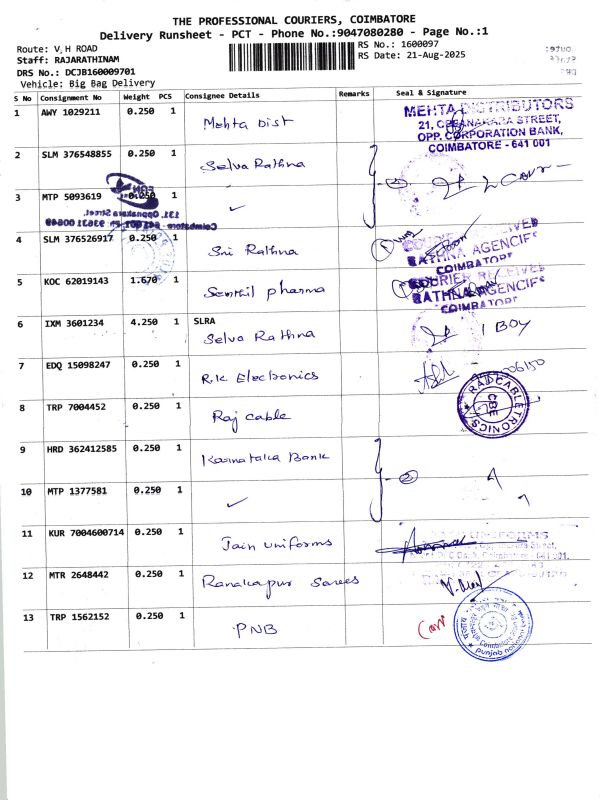 THE PROFESSIONAL COURIERS, COIMBATORE
Delivery Runsheet - PCT - Phone No.:9047080280 - Page No.:1
Route: V.H ROAD
RS No.: 1600097
Staff: RAJARATHINAM
RS Date: 21-Aug-2025
DRS No.: DCJB160009701
Vehicle: Big Bag Delivery
S No Consignment No Weight PCS Consignee Details Remarks Seal & Signature
1 AWY 1029211 0.250 1 Mehta Dist
MEHTA DISTRIBUTORS
21, OPPANAKARA STREET,
OPP. CORPORATION BANK,
COIMBATORE - 641 001
2 SLM 376548855 0.250 1 Selva Rathna
3 MTP 5093619 0.250 1 ✓
131, Oppnakara Street,
4 SLM 376526917 0.250 1 Sri Rathna
COURIER RECEIVED
RATHNA AGENCIES
COIMBATORE
5 KOC 62019143 1.670 1 Senthil pharma
COURIER RECEIVED
RATHNA AGENCIES
COIMBATORE
6 IXM 3601234 4.250 1 SLRA
Selva Rathna
1 BOY
7 EDQ 15098247 0.250 1 R.K Electronics
8 TRP 7004452 0.250 1 Raj cable
RAJ CABLETRONICS
CBE
9 HRD 362412585 0.250 1 Karnataka Bank
10 MTP 1377581 0.250 1 ✓
11 KUR 7004600714 0.250 1 Jain uniforms
12 MTR 2648442 0.250 1 Ranakapur Sarees
13 TRP 1562152 0.250 1 PNB